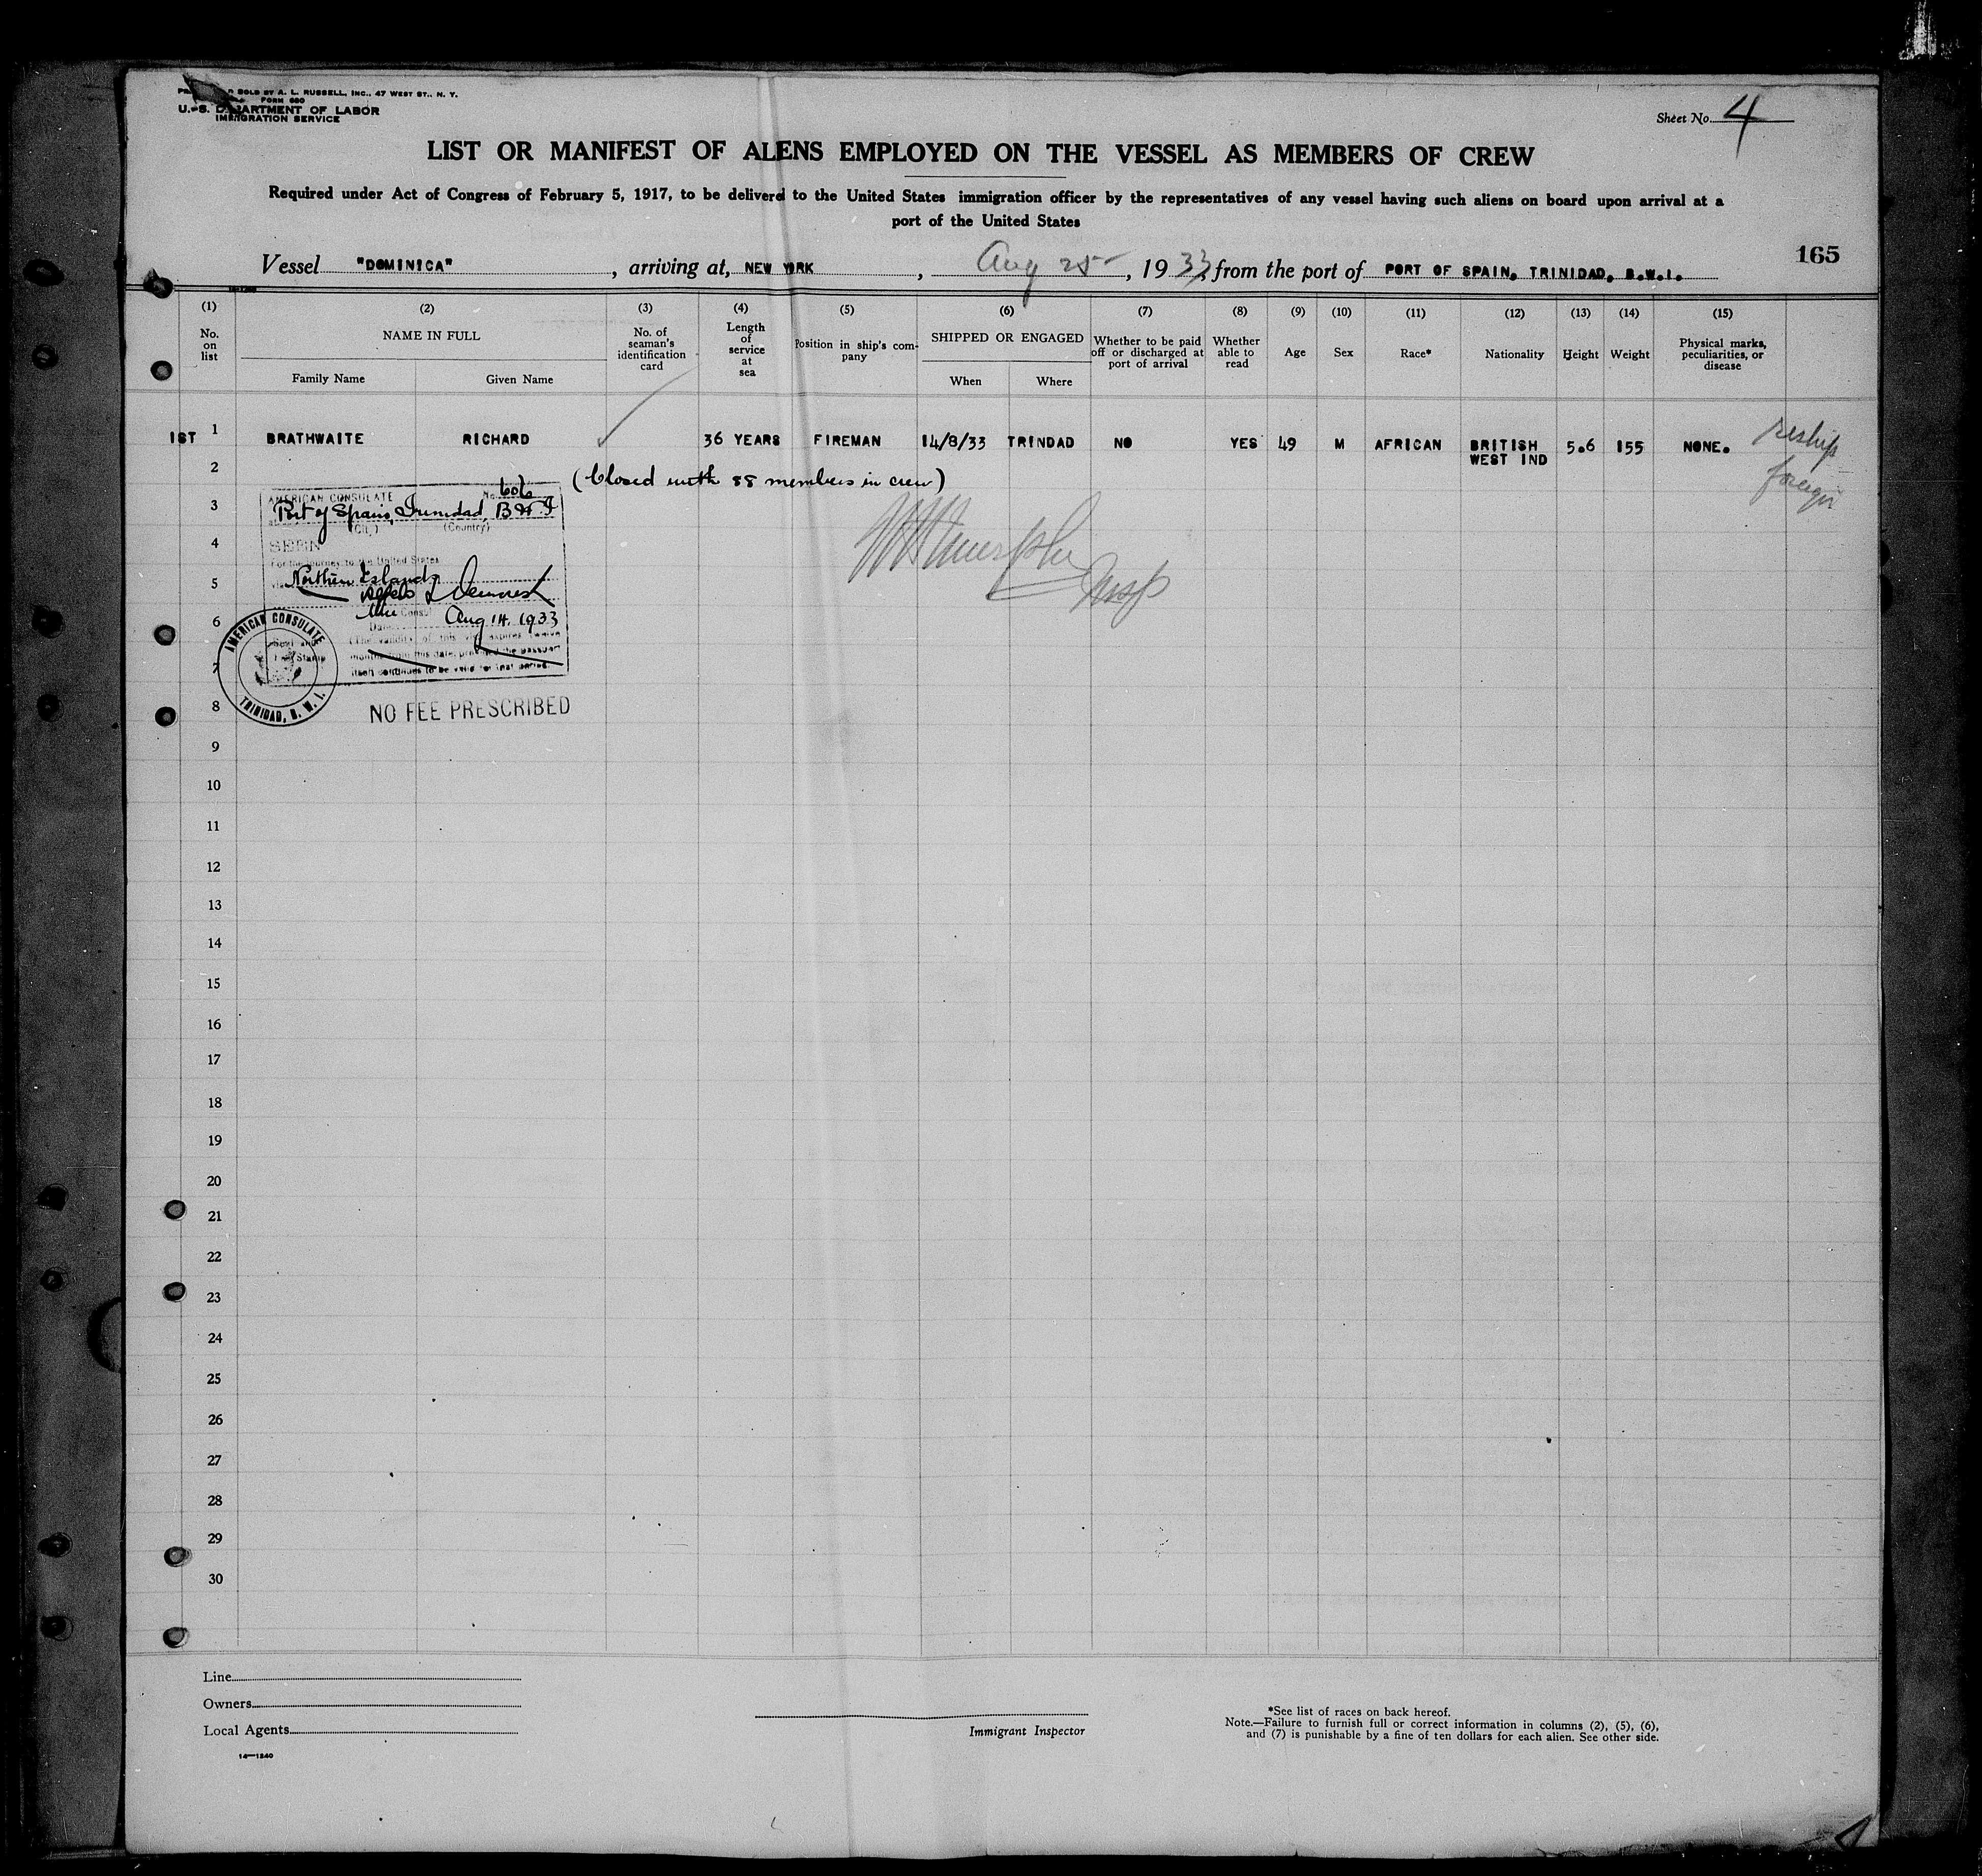 SOLD BY A. L. RUSSELL, INC., 47 WEST ST., N. Y.
FORM 680
U. S. DEPARTMENT OF LABOR
IMMIGRATION SERVICE
Sheet No. 4
LIST OR MANIFEST OF ALIENS EMPLOYED ON THE VESSEL AS MEMBERS OF CREW
Required under Act of Congress of February 5, 1917, to be delivered to the United States immigration officer by the representatives of any vessel having such aliens on board upon arrival at a
port of the United States
165
Vessel "DOMINICA", arriving at, NEW YORK, Aug 25, 1933, from the port of PORT OF SPAIN, TRINIDAD, B.W.I.
(1) (2) (3) (4) (5) (6) (7) (8) (9) (10) (11) (12) (13) (14) (15)
No. on list
NAME IN FULL
Family Name Given Name
No. of seaman's identification card
Length of service at sea
Position in ship's company
SHIPPED OR ENGAGED
When Where
Whether to be paid off or discharged at port of arrival
Whether able to read
Age
Sex
Race*
Nationality
Height
Weight
Physical marks, peculiarities, or disease
1ST 1 BRATHWAITE RICHARD 36 YEARS FIREMAN 14/8/33 TRINDAD NO YES 49 M AFRICAN BRITISH WEST IND 5.6 155 NONE. reship foreign
2 (Closed with 88 members in crew)
AMERICAN CONSULATE No. 606
3 Port of Spain, Trinidad, B W I
(City) (Country)
4 SEEN
For the journey to the United States
5 Northern Islands
6 Consul
Date Aug 14, 1933
(The validity of this visa expires twelve
7 months from this date, provided the passport
itself continues to be valid for that period.
Seal and Fee Stamp
AMERICAN CONSULATE
TRINIDAD, B. W. I.
8 NO FEE PRESCRIBED
9
10
11
12
13
14
15
16
17
18
19
20
21
22
23
24
25
26
27
28
29
30
Line
Owners
Local Agents
14—1240
Immigrant Inspector
*See list of races on back hereof.
Note.—Failure to furnish full or correct information in columns (2), (5), (6),
and (7) is punishable by a fine of ten dollars for each alien. See other side.